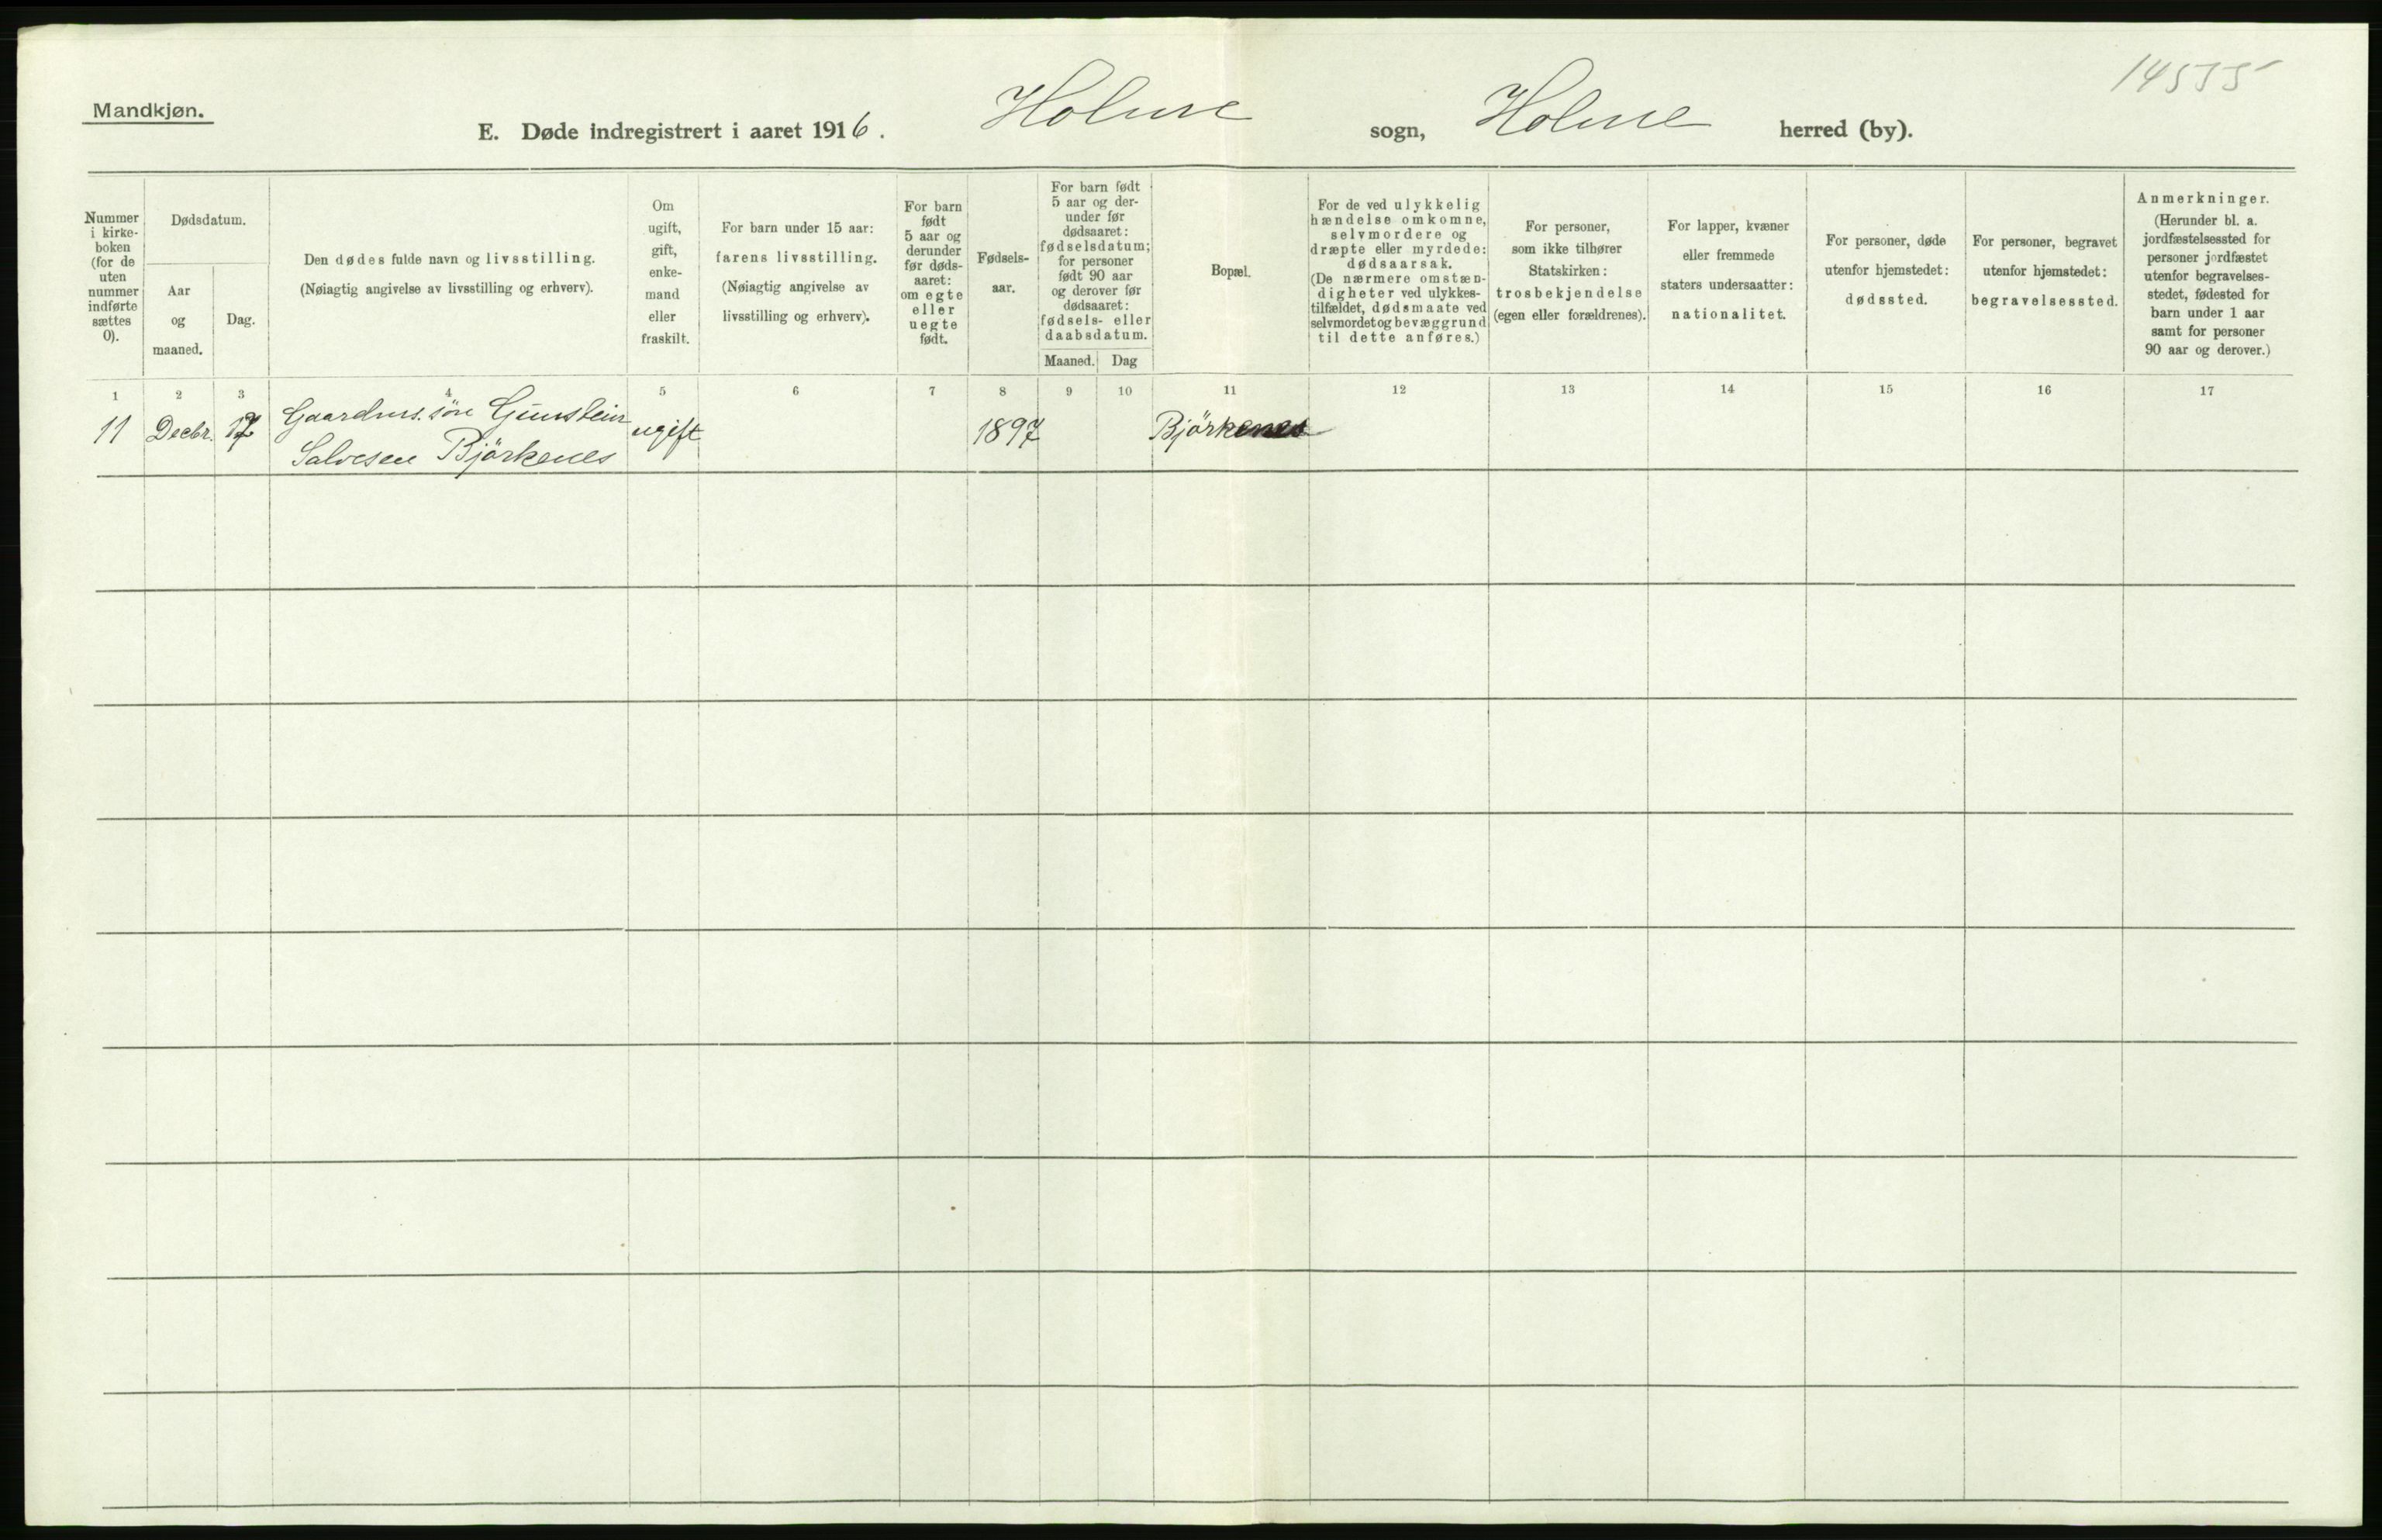 14535
Mandkjøn.
E. Døde indregistrert i aaret 1916. Holme sogn, Holme herred (by).
Nummer
i kirke-
boken
(for de
uten
nummer
indførte
sættes
0).
Dødsdatum.
Aar
og
maaned.
Dag.
Den dødes fulde navn og livsstilling.
(Nøiagtig angivelse av livsstilling og erhverv).
Om
ugift,
gift,
enke-
mand
eller
fraskilt.
For barn under 15 aar:
farens livsstilling.
(Nøiagtig angivelse av
livsstilling og erhverv).
For barn
født
5 aar og
derunder
før døds-
aaret:
om egte
eller
uegte
født.
Fødsels-
aar.
For barn født
5 aar og der-
under før
dødsaaret:
fødselsdatum;
for personer
født 90 aar
og derover før
dødsaaret:
fødsels- eller
daabsdatum.
Maaned. Dag
Bopæl.
For de ved ulykkelig
hændelse omkomne,
selvmordere og
dræpte eller myrdede:
dødsaarsak.
(De nærmere omstæn-
digheter ved ulykkes-
tilfældet, dødsmaate ved
selvmordet og bevæggrund
til dette anføres.)
For personer,
som ikke tilhører
Statskirken:
trosbekjendelse
(egen eller forældrenes).
For lapper, kvæner
eller fremmede
staters undersaatter:
nationalitet.
For personer, døde
utenfor hjemstedet:
dødssted.
For personer, begravet
utenfor hjemstedet:
begravelsessted.
Anmerkninger.
(Herunder bl. a.
jordfæstelsessted for
personer jordfæstet
utenfor begravelses-
stedet, fødested for
barn under 1 aar
samt for personer
90 aar og derover.)
1 2 3 4 5 6 7 8 9 10 11 12 13 14 15 16 17
11 Decbr. Gaardms. sön Gunstein ugift 1897 Björkenes
Salvesen Björkenes